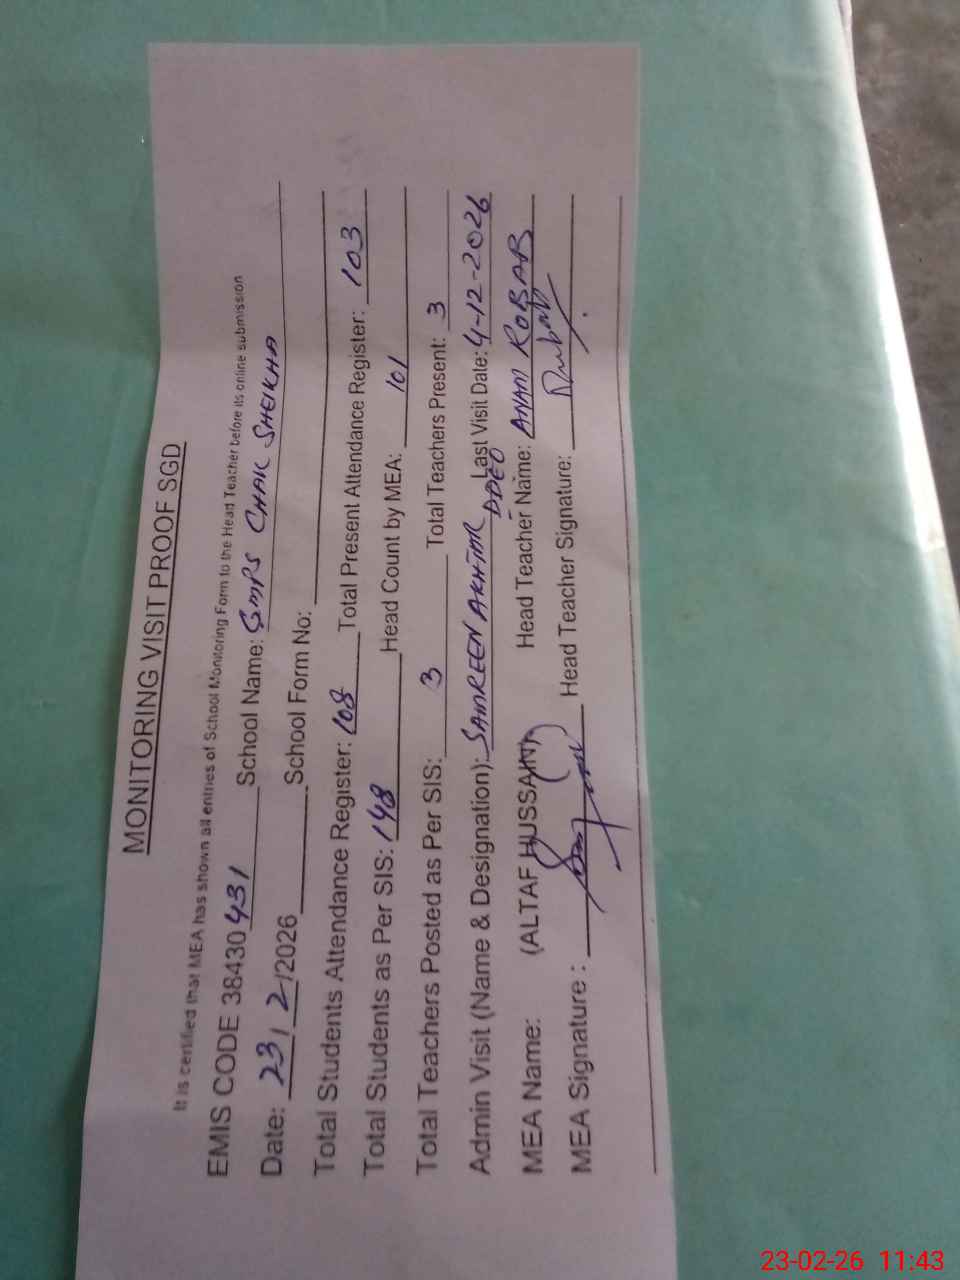 MONITORING VISIT PROOF SGD
It is certified that MEA has shown all entries of School Monitoring Form to the Head Teacher before its online submission
EMIS CODE 38430431 School Name: GMPS CHAK SHEIKHA
Date: 23/2/2026 School Form No:
Total Students Attendance Register: 108 Total Present Attendance Register: 103
Total Students as Per SIS: 148 Head Count by MEA: 101
Total Teachers Posted as Per SIS: 3 Total Teachers Present: 3
Admin Visit (Name & Designation): SAMREEN AKHTAR ADEO Last Visit Date: 4-12-2026
MEA Name: (ALTAF HUSSAIN) Head Teacher Name: ANAM ROBAB
MEA Signature : Head Teacher Signature:
23-02-26 11:43